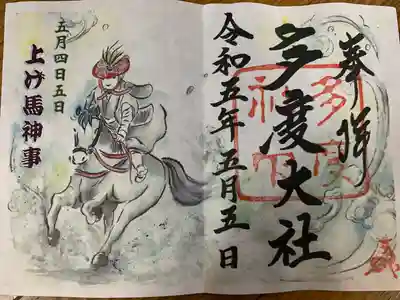 奉拝
多度大社
令和五年 五月五日
五月四日五日
上げ馬神事